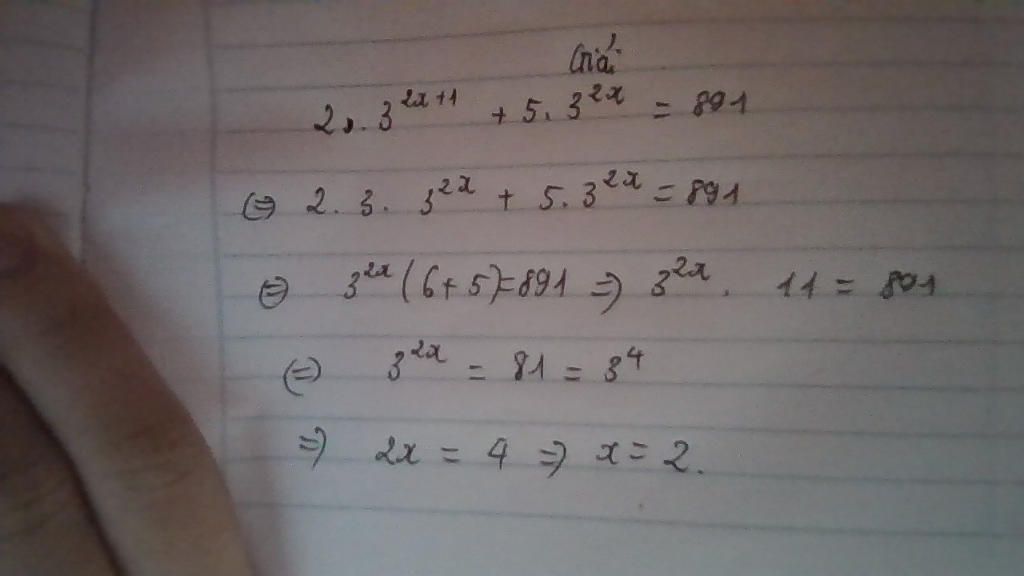 Giải
2. 3^{2x+1} + 5. 3^{2x} = 891
(=) 2. 3. 3^{2x} + 5. 3^{2x} = 891
(=) 3^{2x} (6+5)=891 =) 3^{2x}. 11 = 891
(=) 3^{2x} = 81 = 3^4
=) 2x = 4 =) x = 2.